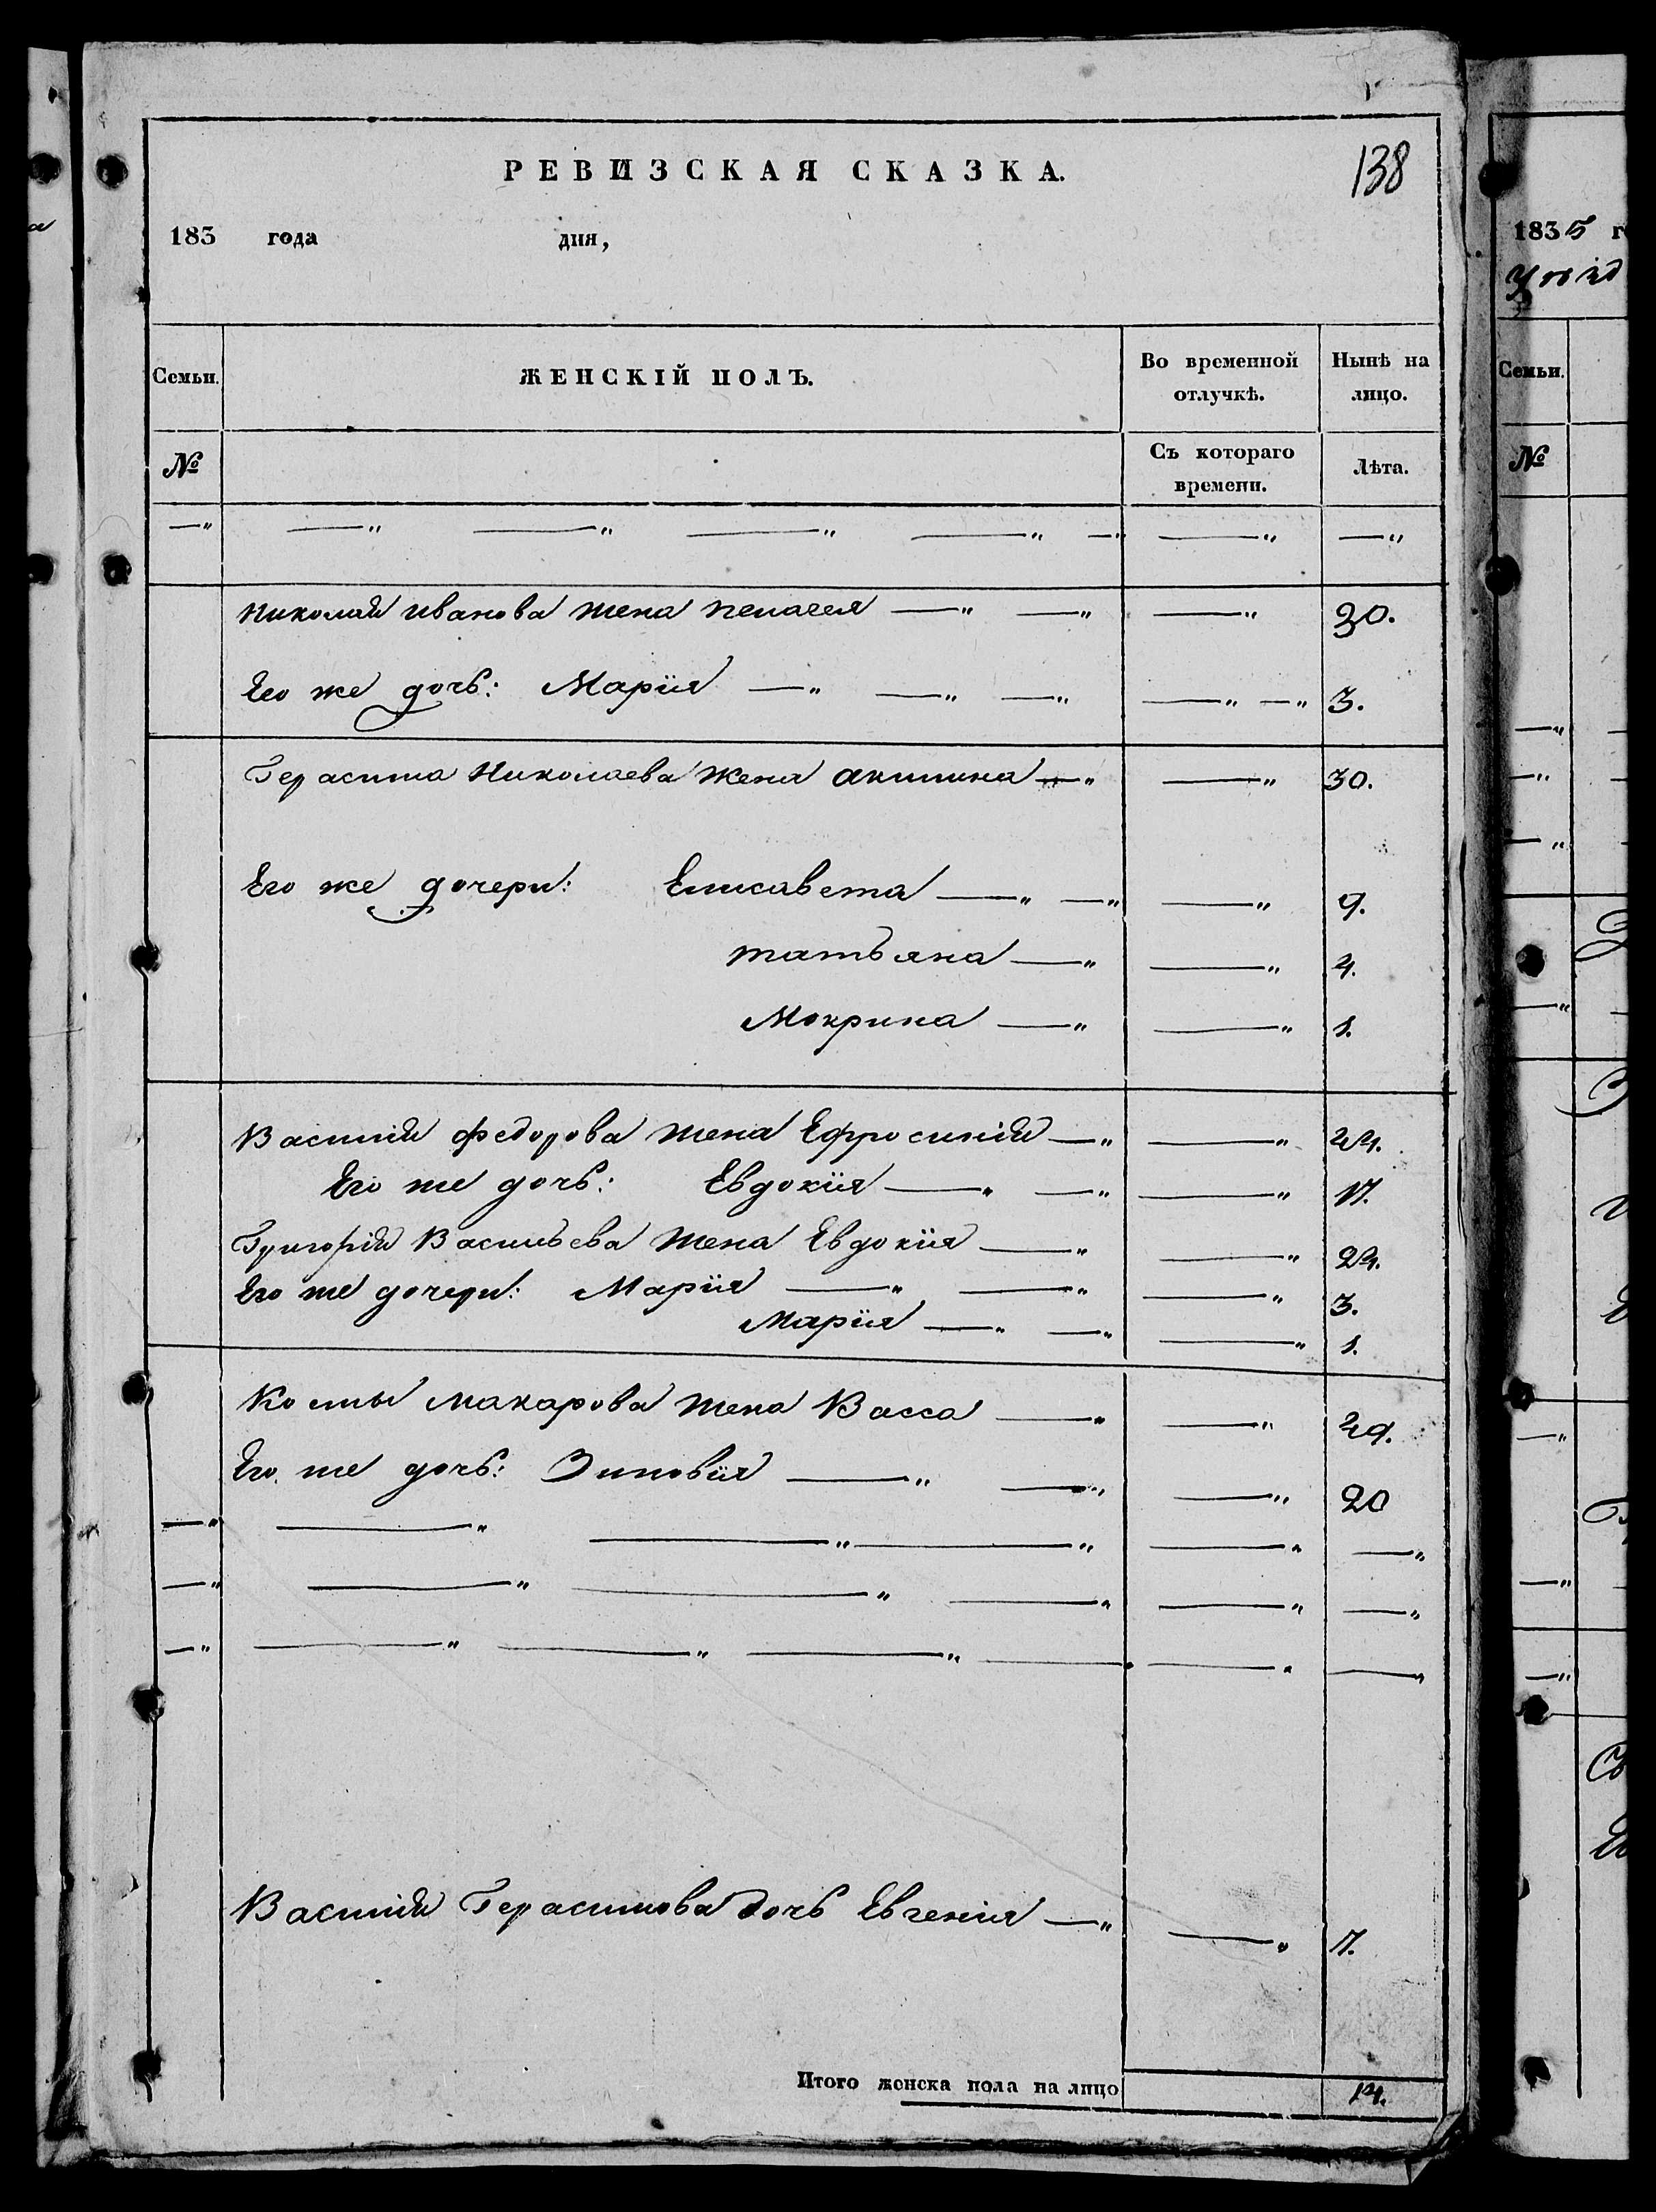 138
РЕВИЗСКАЯ СКАЗКА.
183 года дня,
Семьи. ЖЕНСКІЙ ПОЛЪ. Во временной отлучкѣ. Нынѣ на лицо.
№ Съ котораго времени. Лѣта.
—„ —„ —„ —„ —„ —„ —„ —„
Николай Иванова жена Пелагея —„ —„ —„ 30.
Его же дочь: Марія —„ —„ —„ —„ —„ 3.
Герасима Николаева жена Акилина —„ —„ 30.
Его же дочери: Елисавета —„ —„ —„ 9.
Татьяна —„ —„ 4.
Мокрина —„ —„ 1.
Василій Федорова жена Ефросиній —„ —„
Его же дочь: Евдокія —„ —„ —„ 17.
Григорій Васильева жена Евдокія —„ —„ 24.
Его же дочери: Марія —„ —„ —„ 3.
Марія —„ —„ —„ 1.
Козмы Макарова жена Васса —„ —„
Его же дочь: Зиновія —„ —„ —„ 20
—„ —„ —„ —„ —„ —„
—„ —„ —„ —„ —„ —„
—„ —„ —„ —„ —„ —„ —„
Василій Герасимова дочь Евгенія —„ —„
Итого женска пола на лицо 14.
1835
Семьи.
№